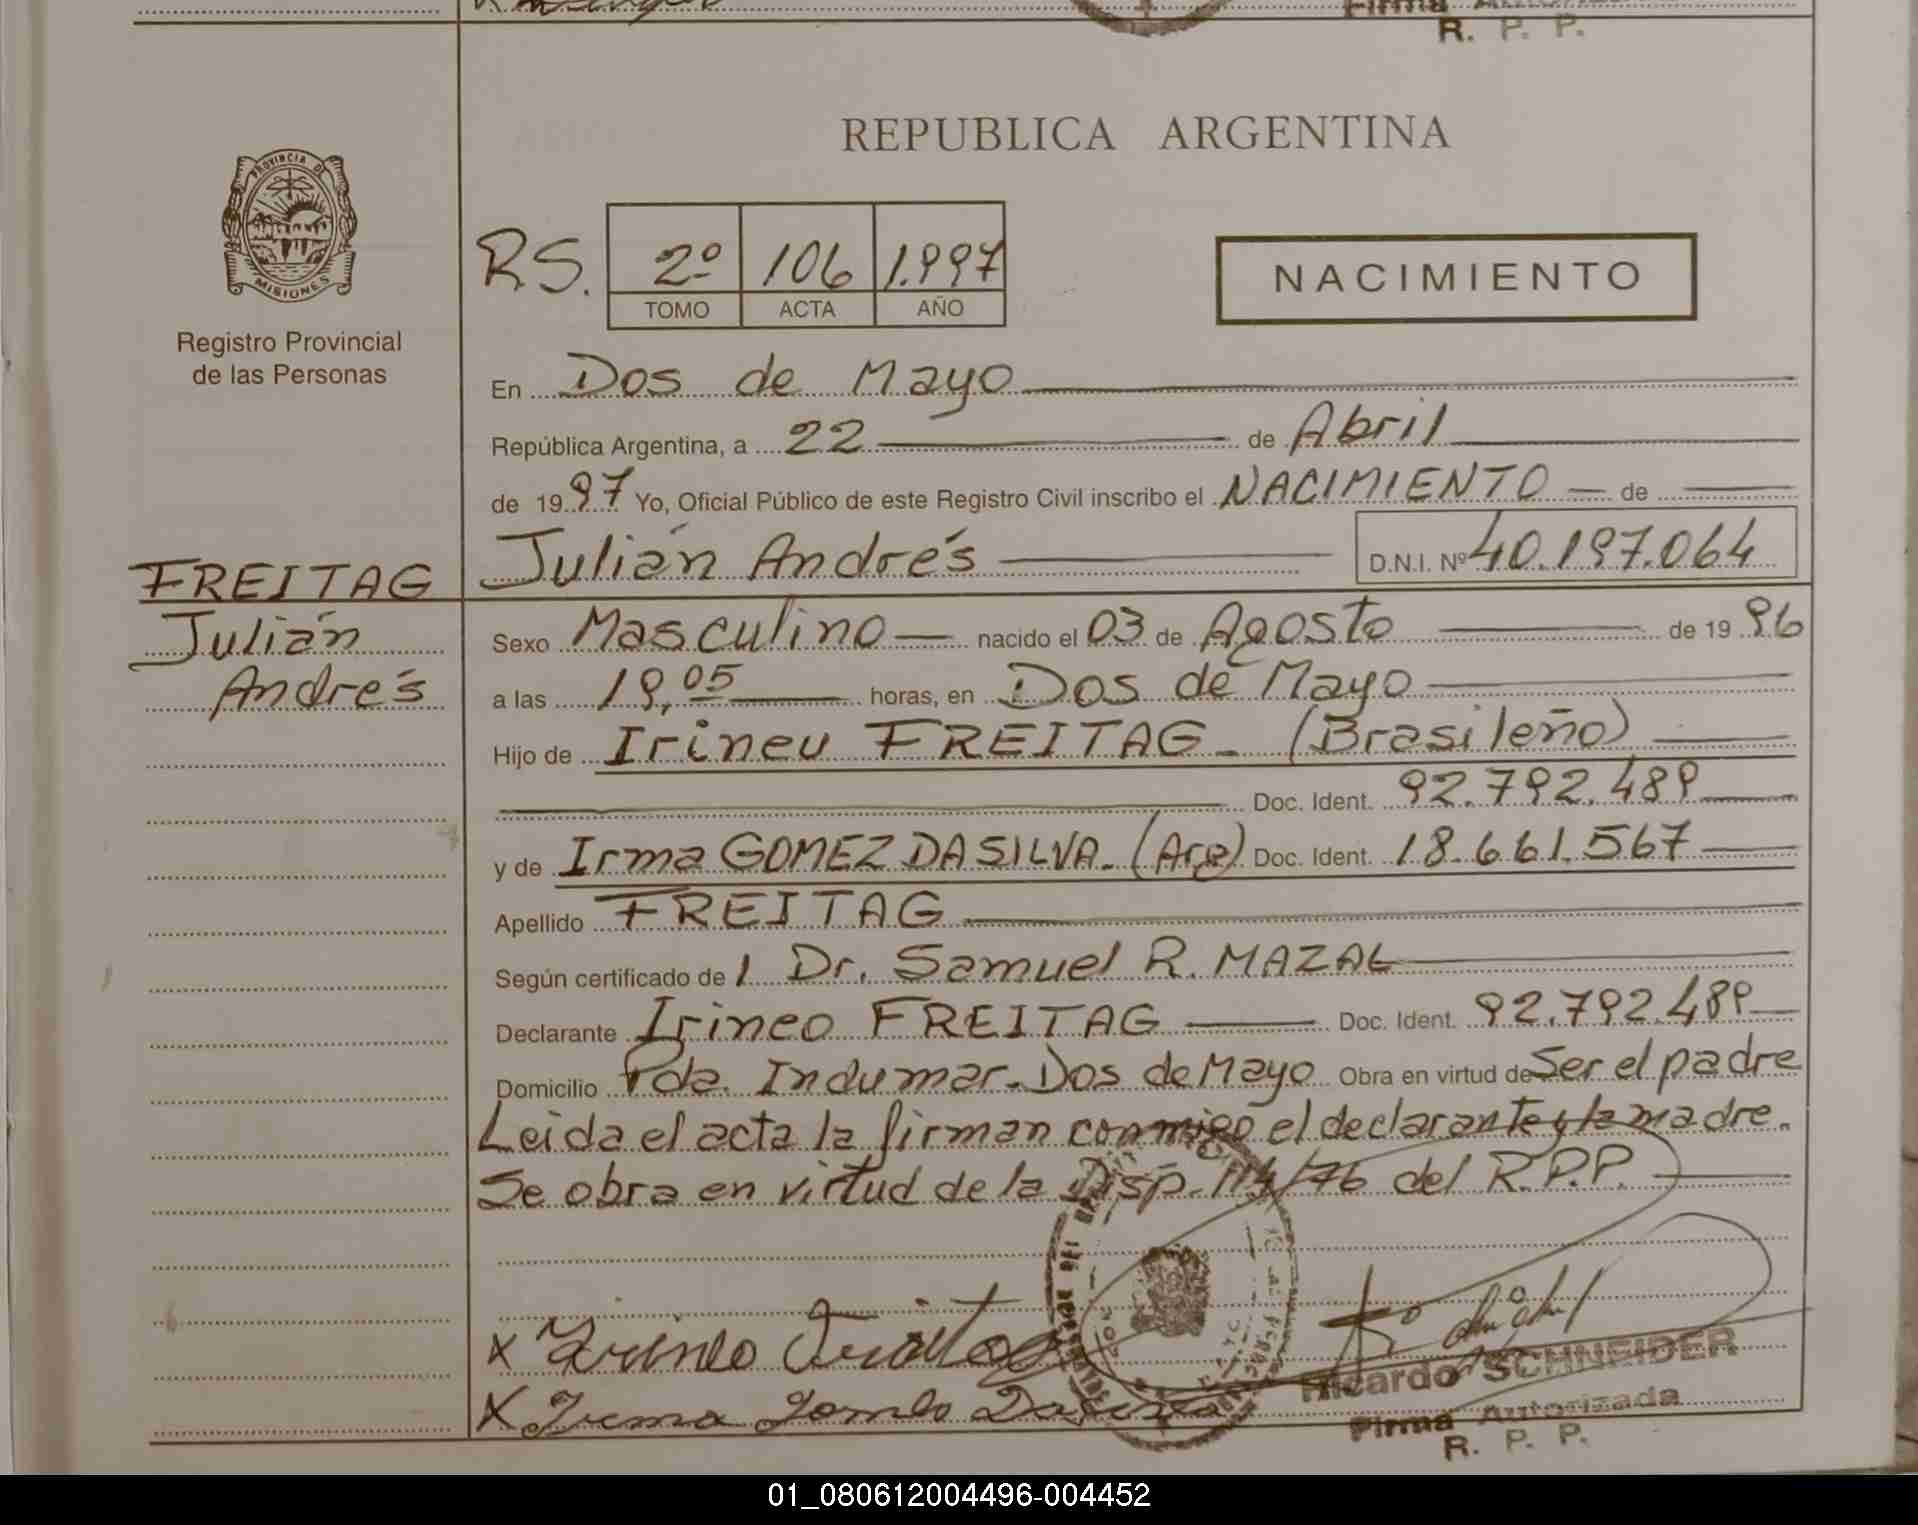 Firma
R. P. P.
REPUBLICA ARGENTINA
PROVINCIA DE
MISIONES
Registro Provincial
de las Personas
RS. 2º 106 1.997
TOMO ACTA AÑO
NACIMIENTO
En Dos de Mayo
República Argentina, a 22 de Abril
de 1997 Yo, Oficial Público de este Registro Civil inscribo el NACIMIENTO de
Julián Andrés D.N.I. Nº 40.197.064
FREITAG
Julián
Andrés
Sexo Masculino nacido el 03 de Agosto de 1996
a las 19,05 horas, en Dos de Mayo
Hijo de Irineu FREITAG. (Brasileño)
Doc. Ident. 92.792.489
y de Irma GOMEZ DA SILVA. (Arg) Doc. Ident. 18.661.567
Apellido FREITAG
Según certificado de 1 Dr. Samuel R. MAZAL
Declarante Irineo FREITAG Doc. Ident. 92.792.489
Domicilio Pda. Indumar. Dos de Mayo Obra en virtud de Ser el padre
Leida el acta la firman conmigo el declarante y la madre.
Se obra en virtud de la Disp. 114/76 del R.P.P.
x Irineo Freitag
x Irma Gomes Da Silva
Ricardo SCHNEIDER
Firma Autorizada
R. P. P.
01_080612004496-004452